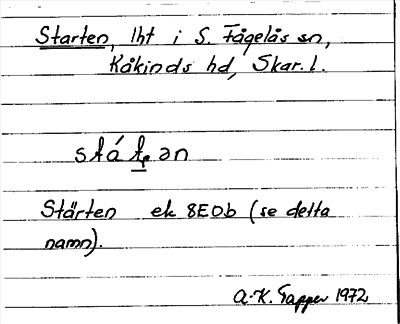 Starten, lht i S. Fågelås sn,
Kåkinds hd, Skar. l.
stá ṯən
Stärten ek 8E0b (se detta
namn).
A.-K. Tapper 1972